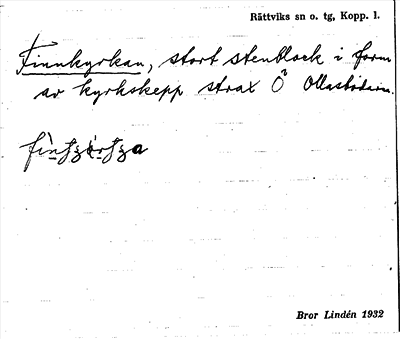 Rättviks sn o. tg, Kopp. l.
Finnkyrkan, stort stenblock i form
av kyrkskepp strax Ö Ollasbodarn.
Bror Lindén 1932